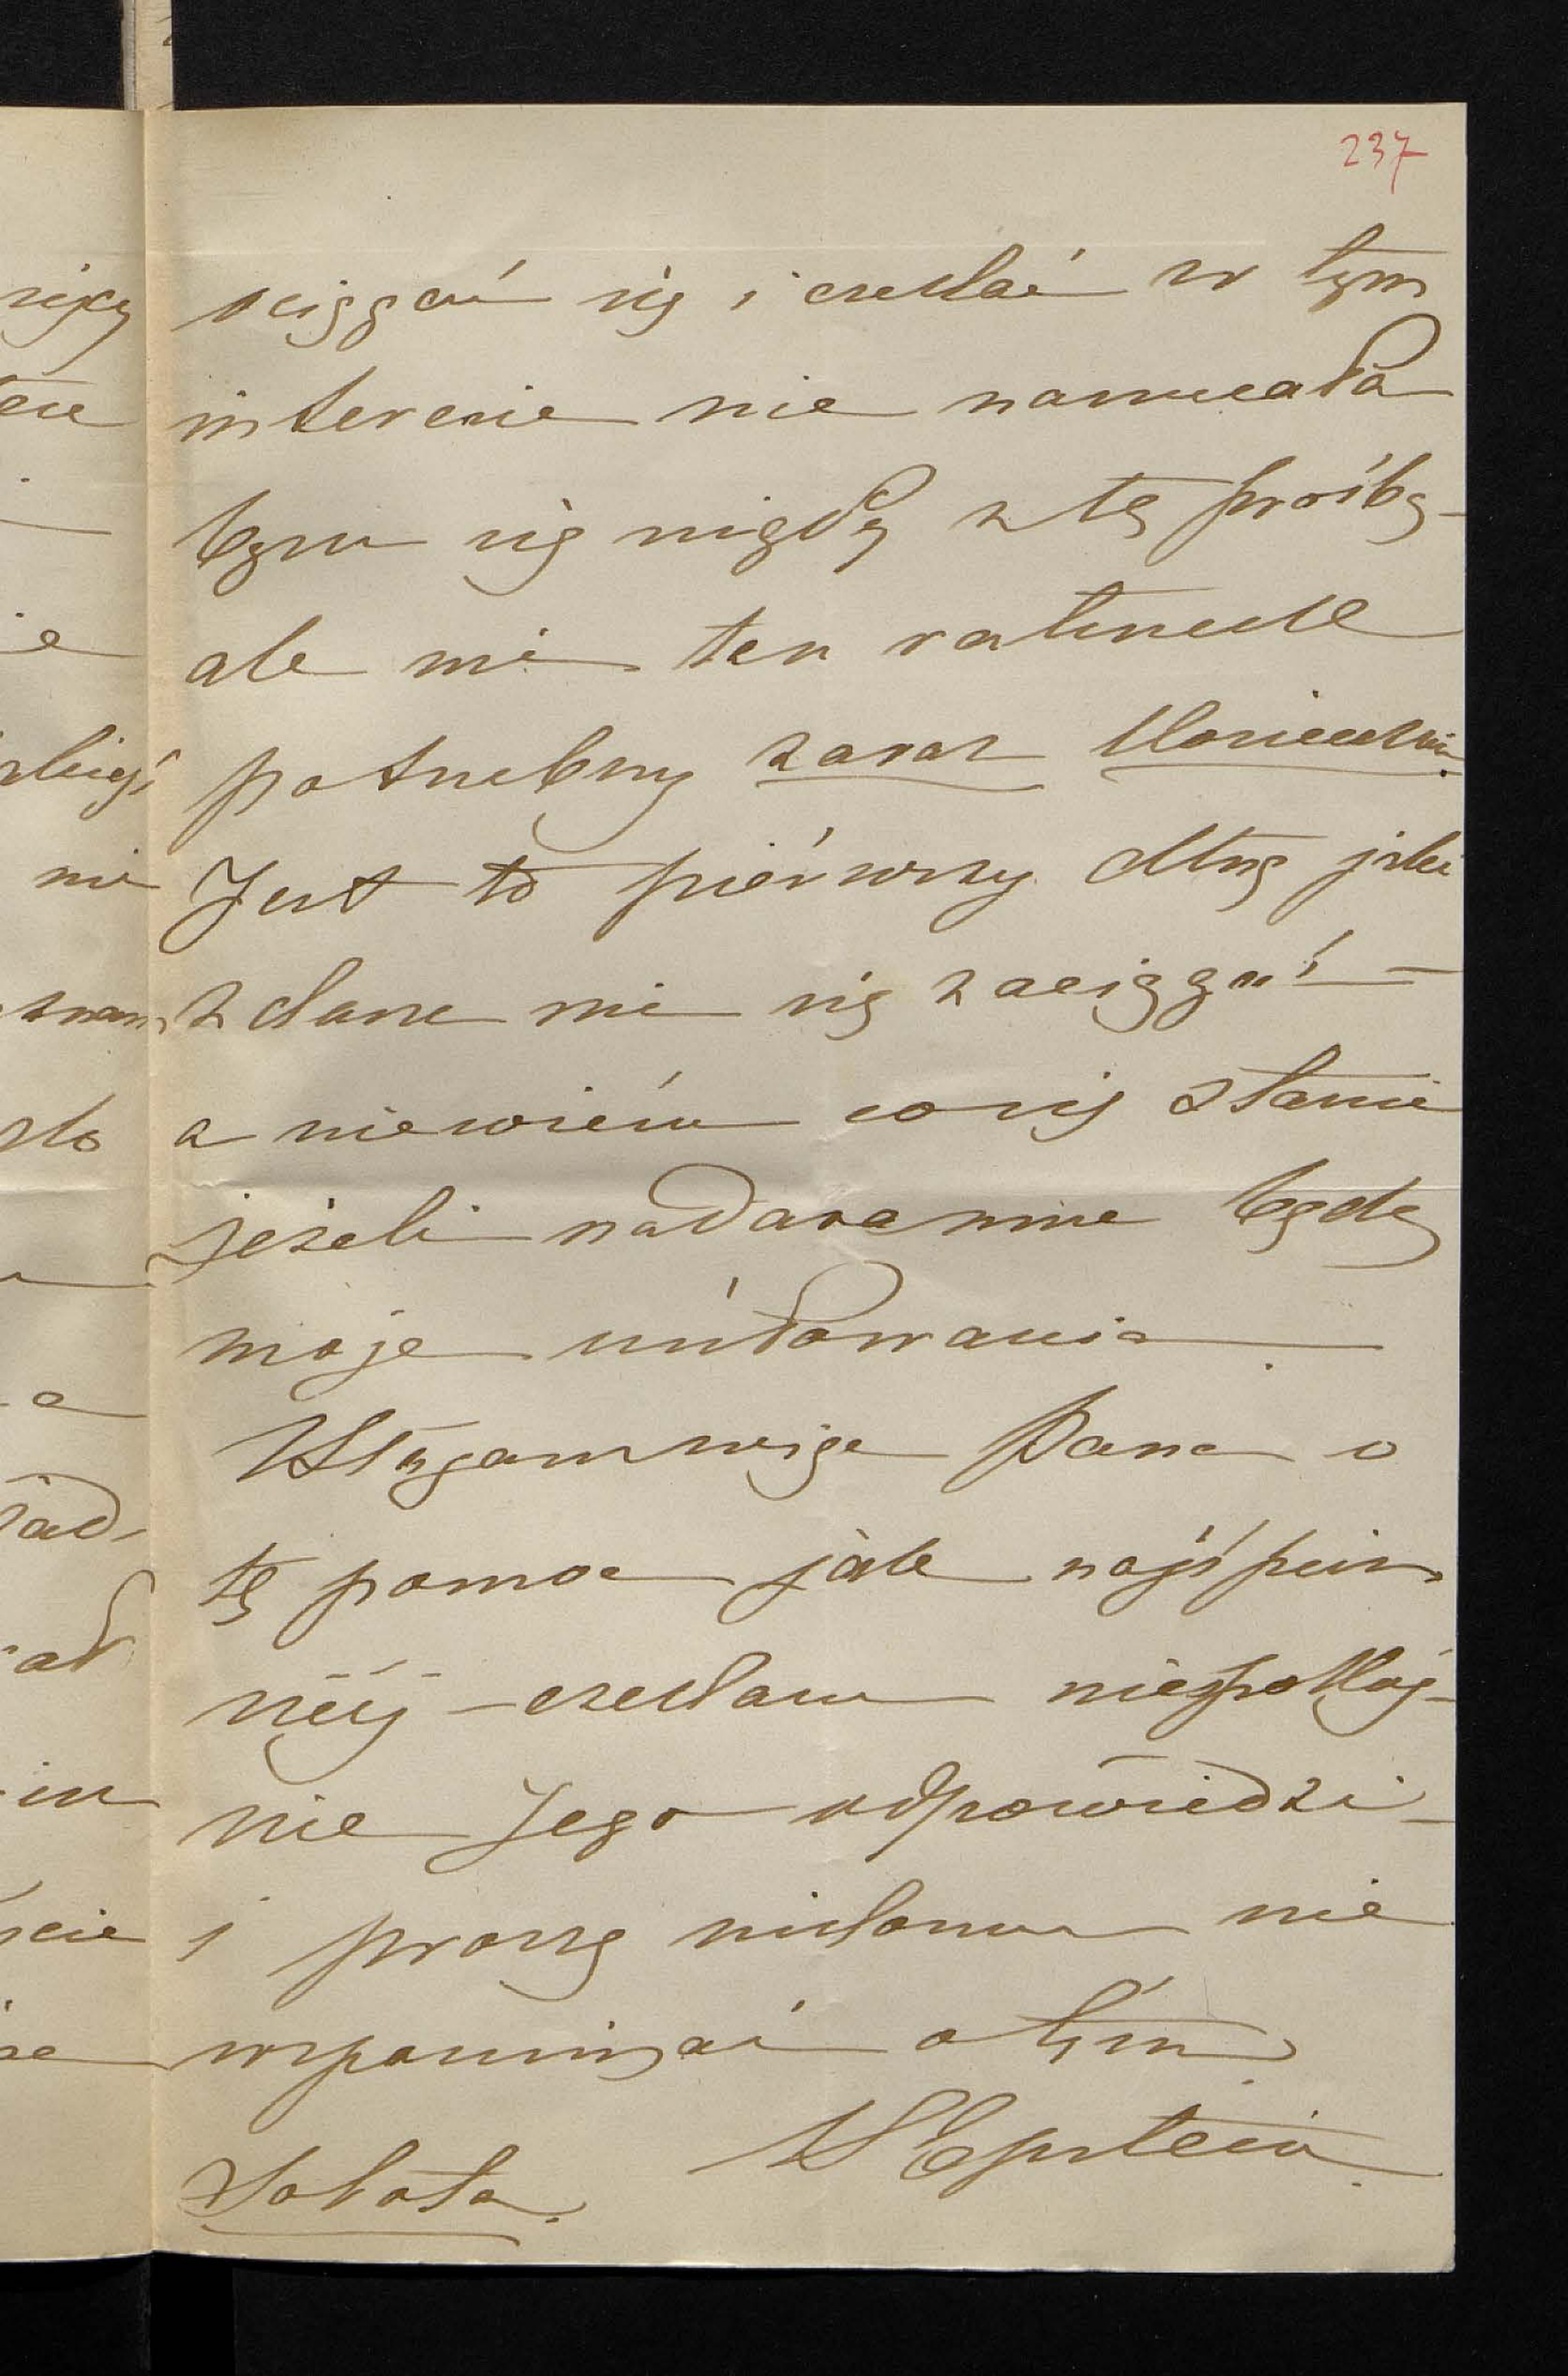 237
ociągać się i czekać w tym
interesie nie narzucała
bym się nigdy z tą prośbą –
ale mi ten ratunek
potrzebny zaraz koniecznie.
Jest to piérwszy dług jaki
zdarza mi się zaciągać –
a niewiém co się stanie
jeżeli nadaremne będą
moje usiłowania.
Błagam więc Pana o
tę pomoc jak najśpiesz
niéj – czekam niespokoj–
nie Jego odpowiedzi –
i proszę nikomu nie
wspominać o tém.
Epstein.
Sobota.